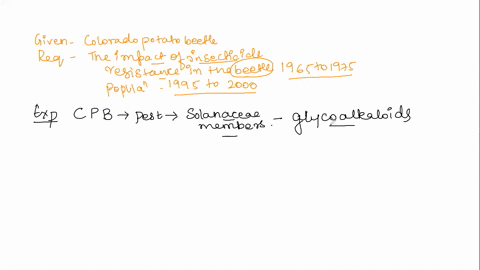 Given - Colorado potato beetle
Req - The impact of insecticide
resistance in the beetle 1965 to 1975
populaⁿ - 1995 to 2000
Exp CPB → pest → Solanaceae - glycoalkaloids
members.